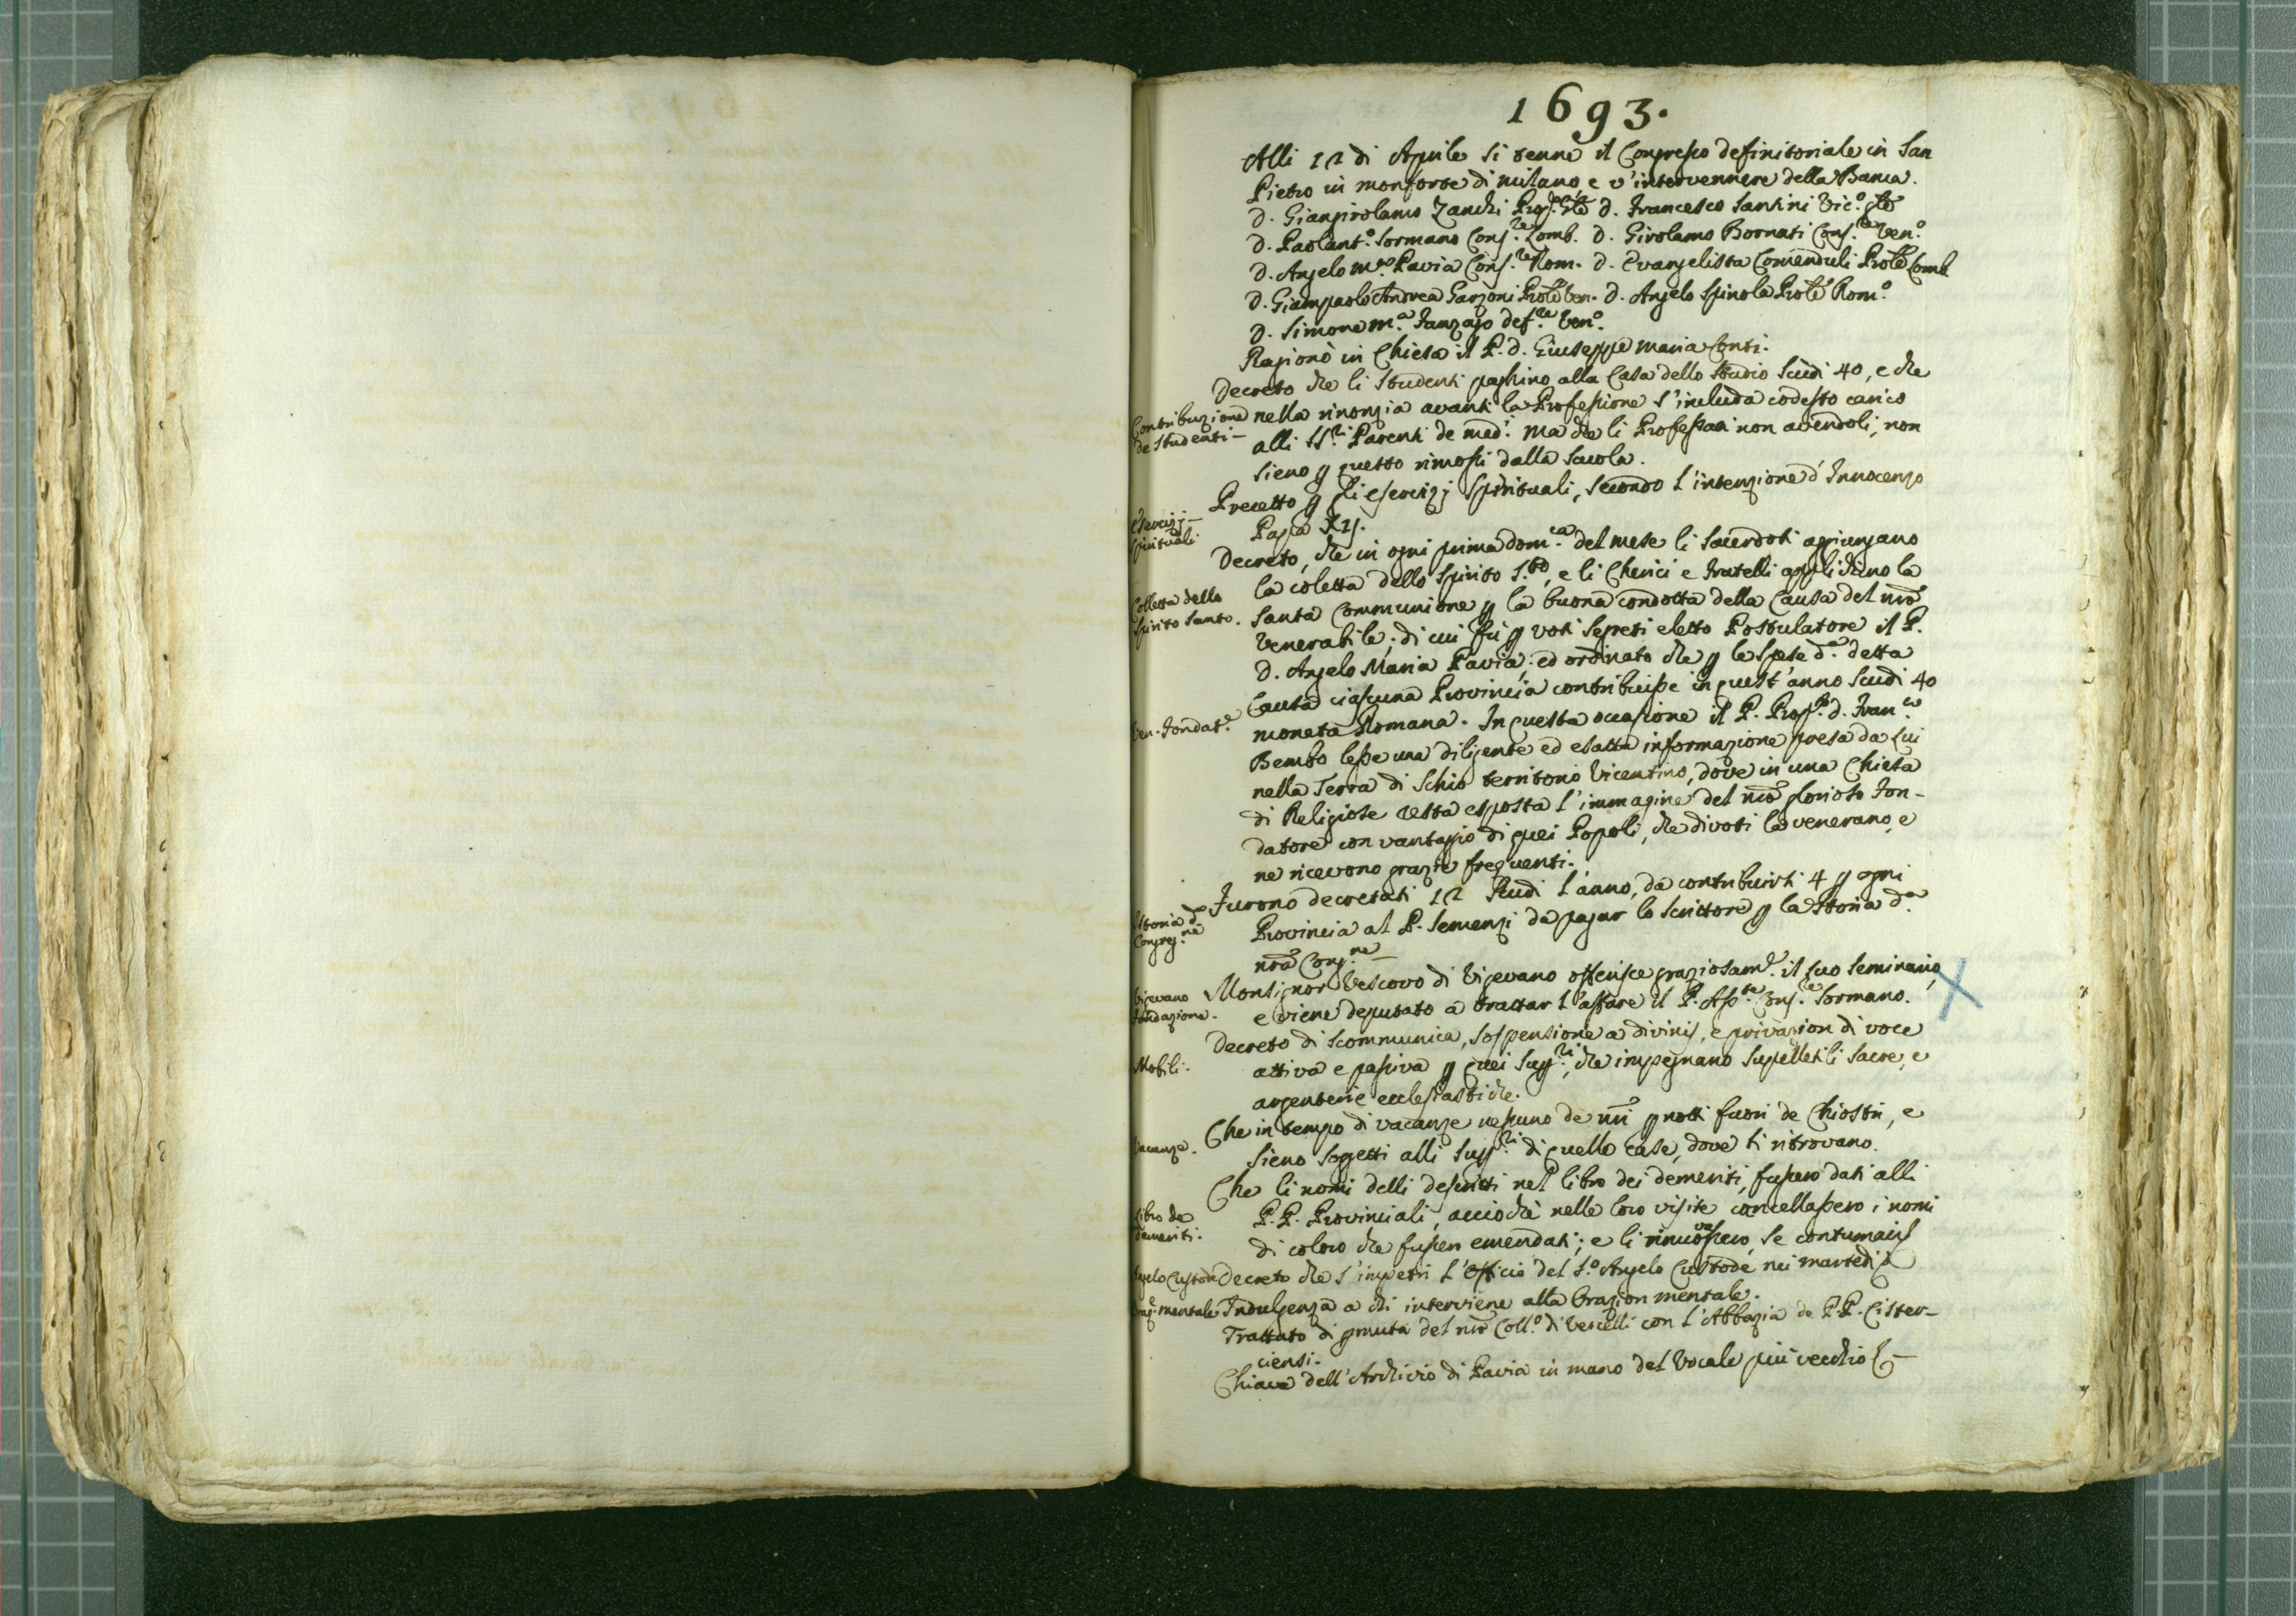 1693.
Alli 12 di Aprile si tenne il Congresso definitoriale in San
Pietro in monforte di milano, e v'intervennere della Banca.
D. Giangirolamo Zanchi Prep.to Gle D. Francesco Santini Vic.o Gle
D. Paolant.o Sormano Cons.re Lomb. D. Girolamo Bornati Cons.re Ven.o
D. Angelo M.a Pavia Cons.re Rom. D. Evangelista Comenduli Prole Lomb.
D. Giampaolo Andrea Garzoni Prole Ven. D. Angelo Spinola Prole Rom.o
D. Simone M.a Fanzago def.re Ven.o
Ragionò in Chiesa il P. D. Giuseppe Maria Conti.
Decreto che li studenti paghino alla Casa dello studio scudi 40, e che
Contribuzione de studenti –
nella rinonzia avanti la Professione s'includa codesto carico
alli SS.ri Parenti de med.i Ma che li Professati non avendoli, non
sieno p questo rimossi dalla scuola.
Precetto p gli esercizj spirituali, secondo l'intenzione d'Innocenzo
Esercizj – spirituali
Papa XIJ.
Decreto, che in ogni prima dom.ca del mese li sacerdoti aggiungano
la coletta dello Spirito S.to, e li Cherici e Fratelli applichino la
Colletta dello Spirito Santo.
Santa Communione p la buona condotta della Causa del nro
Venerabile; di cui fù p voti segreti eletto Postulatore il P.
D. Angelo Maria Pavia: ed ordinato che p le spese d.a detta
Causa ciascuna Provincia contribuisse in quest'anno scudi 40
Ven. Fondat.e
moneta Romana. In questa occasione il P. Prep.to D. Fran.co
Bembo lesse una diligente ed esatta informazione presa da lui
nella Terra di Schio territorio Vicentino, dove in una Chiesa
di Religiose resta esposta l'immagine del nro glorioso Fon-
datore con vantaggio di quei Popoli, che divoti la venerano, e
ne ricevono grazie frequenti.
Furono decretati 12 scudi l'anno, da contribuirsi 4 p ogni
Istoria d.a Congreg.ne
Provincia al P. Semenzi da pagar lo scrittore p la storia d.a
nra Cong.ne
Monsignor Vescovo di Vigevano offerisce graziosam.e il suo seminario,
Vigevano fondazione.
e viene deputato a trattar l'affare il P. Ass.te Cons.re Sormano.
Decreto di scommunica, sospensione a divinis, e privazion di voce
Mobili.
attiva e passiva p quei Supp.ri, che impegnano supelletili sacre, e
argenterie ecclesiastiche.
Che in tempo di vacanze nessuno de nri pnotti fuori de Chiostri, e
Vacanze.
sieno soggetti alli Supp.ri di quelle case, dove si ritrovano.
Che li nomi delli descritti nel libro dei demeriti, fussero dati alli
Libro de demeriti.
P.P. Provinciali, acciochè nelle loro visite cancellassero i nomi
di coloro che fussen emendati; e li rinovassero, se contumaci
Angelo Custode
Decreto che s'impetri l'Officio del S.o Angelo Custode nei martedì
Oraz.e mentale
Indulgenza a chi interviene alla Orazion mentale.
Trattato di pmuta del nro Coll.o di Vercelli con l'Abbazia de P.P. Cister-
ciensi.
Chiave dell'Archivio di Pavia in mano del Vocale più vecchio